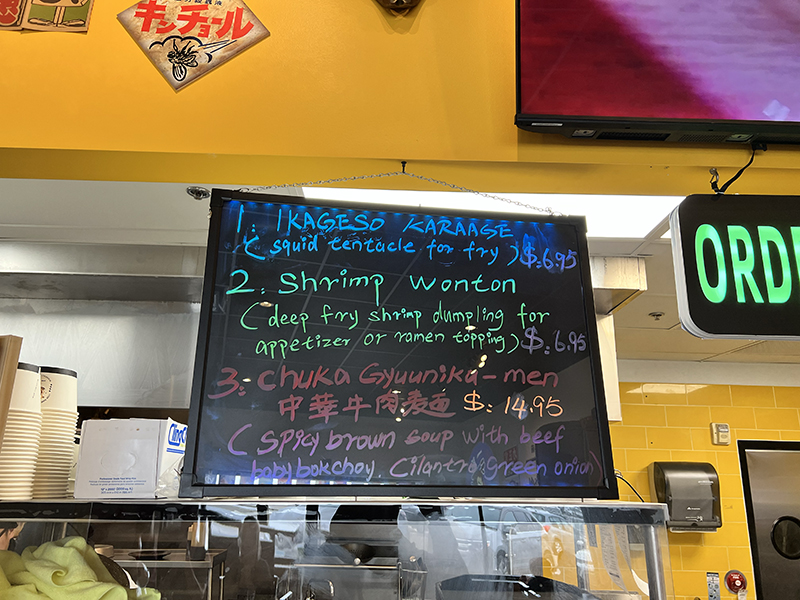 キンチョール
1. IKAGESO KARAAGE
( squid tentacle for fry ) $.6.95
2. Shrimp wonton
( deep fry shrimp dumpling for
appetizer or ramen topping ) $.6.95
3. Chuka Gyuunika-men
中華牛肉湯麺 $. 14.95
( spicy brown soup with beef
baby bokchoy, Cilantro, Green onion )
ORD